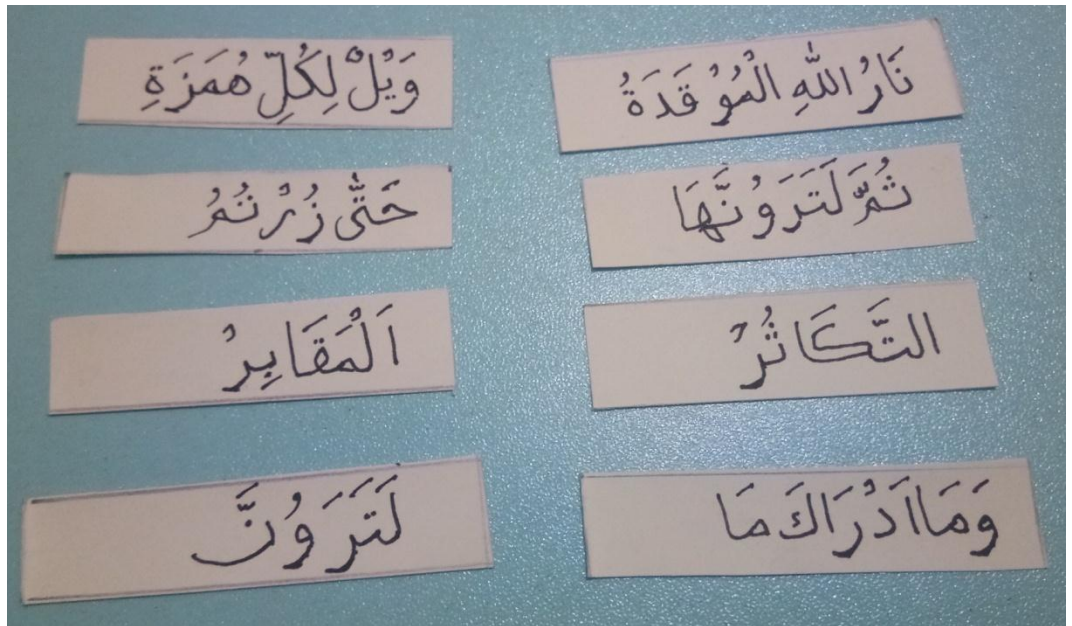 نَارُ اللّٰهِ الْمُوْقَدَةُ
وَيْلٌ لِكُلِّ هُمَزَةِ
ثُمَّ لَتَرَوُنَّهَا
حَتّٰى زُرْتُمُ
التَّكَاثُرْ
اَلْمَقَابِرْ
وَمَا اَدْرَاكَ مَا
لَتَرَوُنَّ